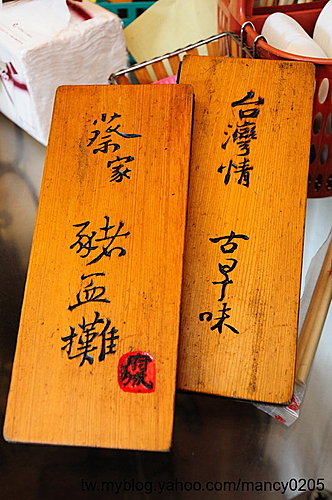 蔡家 豬血攤
府城
台灣情 古早味
tw.myblog.yahoo.com/mancy0205